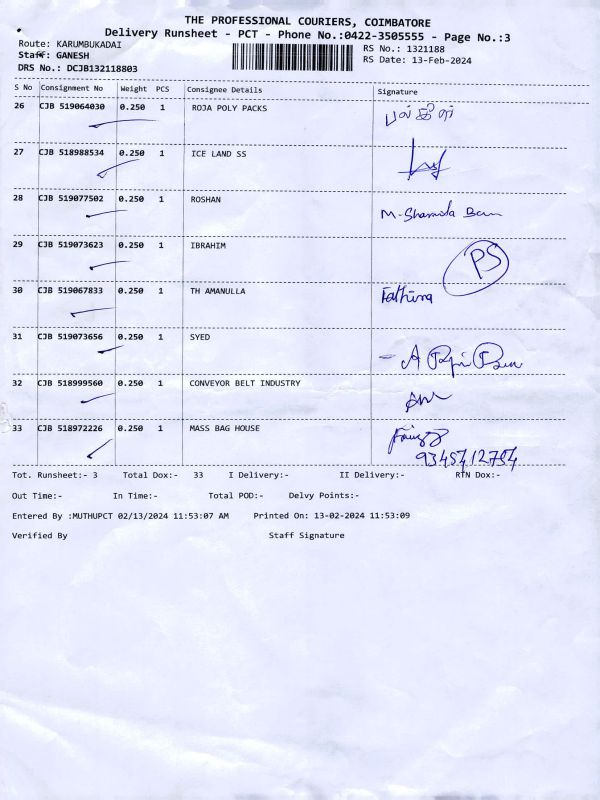 THE PROFESSIONAL COURIERS, COIMBATORE
Delivery Runsheet - PCT - Phone No.:0422-3505555 - Page No.:3
Route: KARUMBUKADAI
RS No.: 1321188
Staff: GANESH
RS Date: 13-Feb-2024
DRS No.: DCJB132118803
S No Consignment No Weight PCS Consignee Details Signature
26 CJB 519064030 0.250 1 ROJA POLY PACKS
27 CJB 518988534 0.250 1 ICE LAND SS
28 CJB 519077502 0.250 1 ROSHAN
29 CJB 519073623 0.250 1 IBRAHIM PS
30 CJB 519067833 0.250 1 TH AMANULLA Fathima
31 CJB 519073656 0.250 1 SYED
32 CJB 518999560 0.250 1 CONVEYOR BELT INDUSTRY
33 CJB 518972226 0.250 1 MASS BAG HOUSE
Tot. Runsheet:- 3 Total Dox:- 33 I Delivery:- II Delivery:- RTN Dox:-
Out Time:- In Time:- Total POD:- Delvy Points:-
Entered By :MUTHUPCT 02/13/2024 11:53:07 AM Printed On: 13-02-2024 11:53:09
Verified By Staff Signature